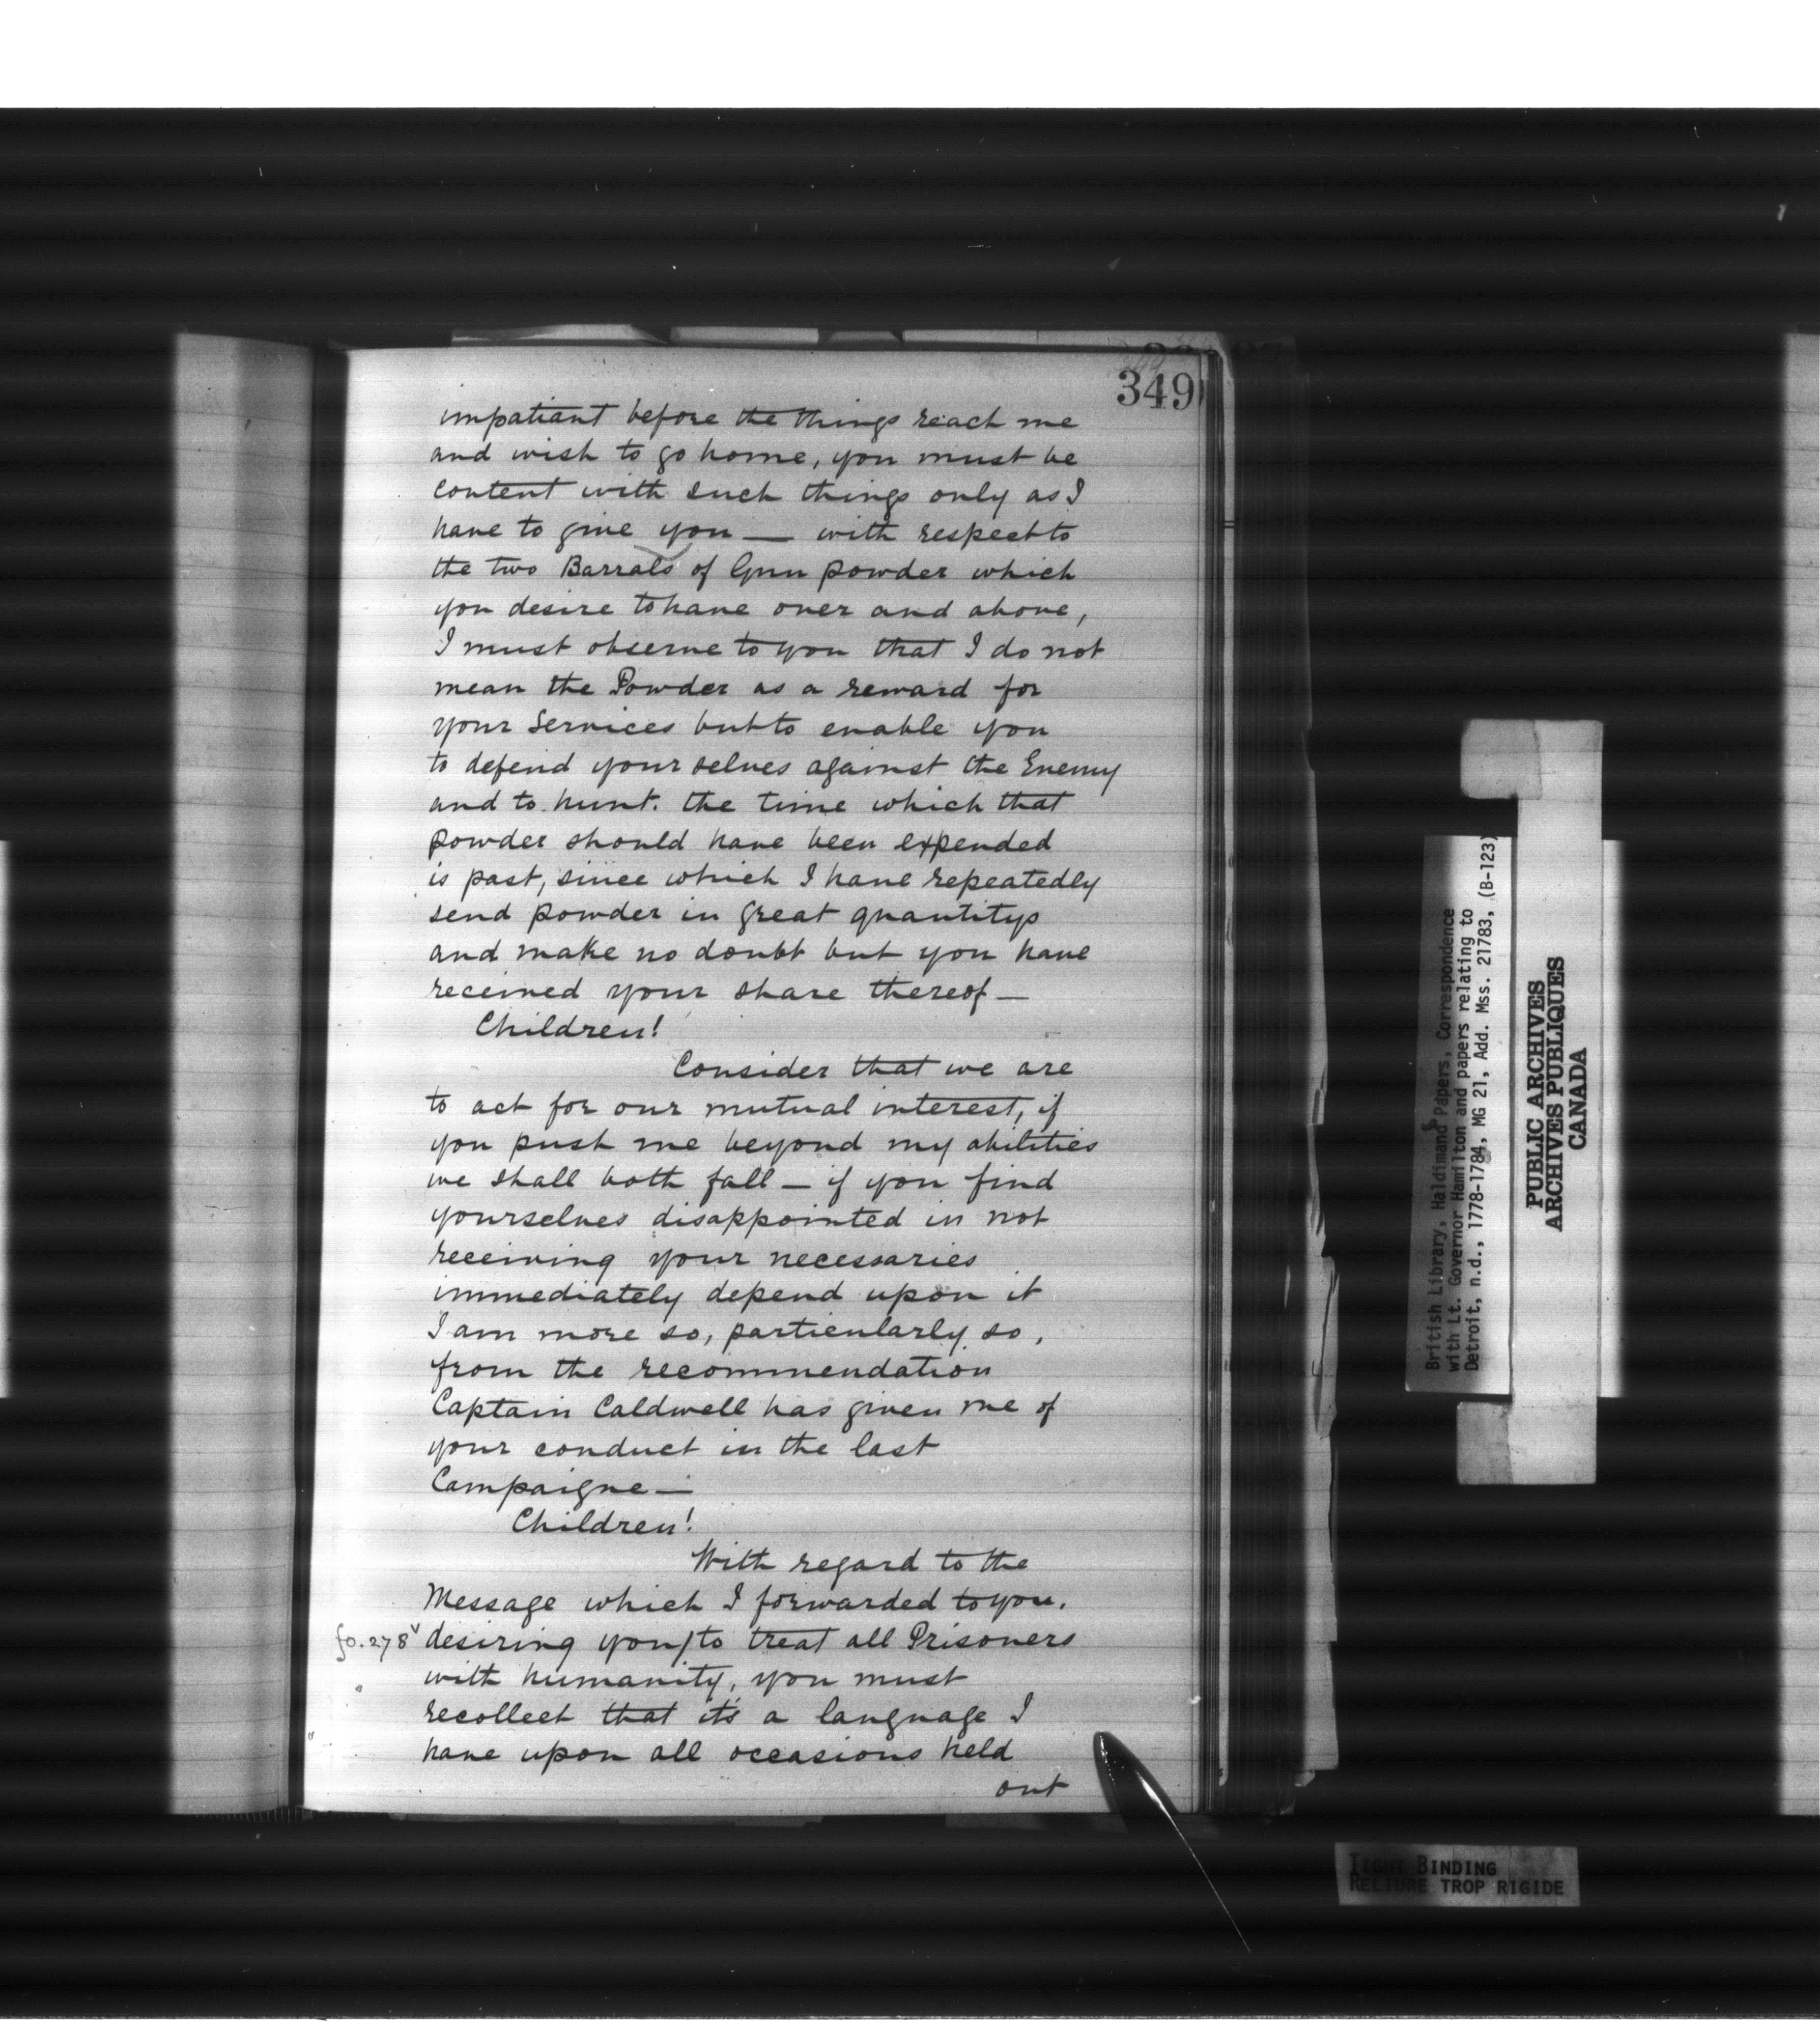 349
impatiant before the things reach me
and wish to go home, you must be
content with such things only as I
have to give you — with respect to
the two Barrals of Gun powder which
you desire to have over and above,
I must observe to you that I do not
mean the Powder as a reward for
your Services but to enable you
to defend your selves against the Enemy
and to hunt. the time which that
powder should have been expended
is past, since which I have repeatedly
send powder in great quantitys
and make no doubt but you have
received your share thereof —
Children!
Consider that we are
to act for our mutual interest, if
you push me beyond my abilities
we shall both fall — if you find
yourselves disappointed in not
receiving your necessaries
immediately depend upon it
I am more so, particularly so,
from the recommendation
Captain Caldwell has given me of
your conduct in the last
Campaigne —
Children!
With regard to the
Message which I forwarded to you.
fo. 278v desiring you/to treat all Prisoners
with humanity, you must
recollect that it's a language I
have upon all occasions held
out
British Library, Haldimand Papers, Correspondence
with Lt. Governor Hamilton and papers relating to
Detroit, n.d., 1778-1784, MG 21, Add. Mss. 21783, (B-123)
PUBLIC ARCHIVES
ARCHIVES PUBLIQUES
CANADA
TIGHT BINDING
RELIURE TROP RIGIDE